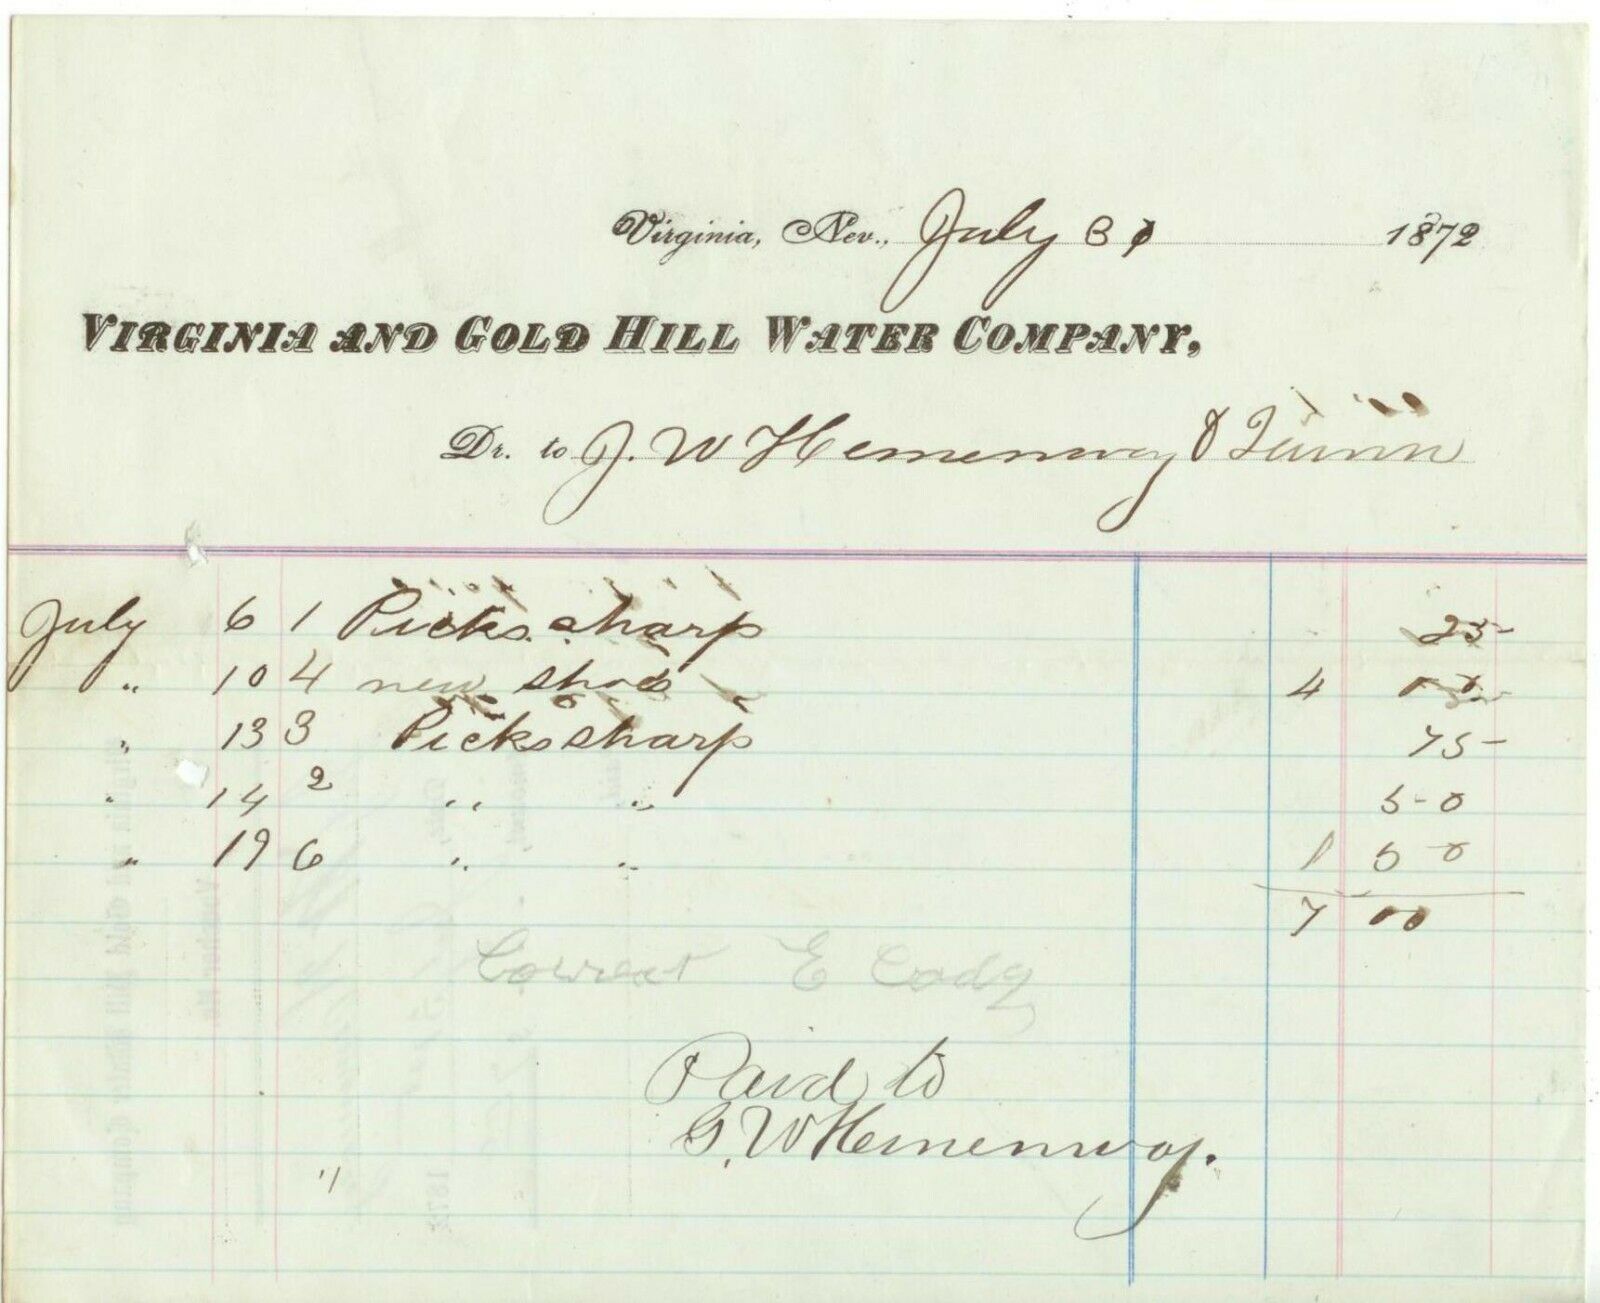 Virginia, Nev., July 31 1872
VIRGINIA AND GOLD HILL WATER COMPANY,
Dr. to J. W Hemenway & Quinn
July 6 1 Picks sharp 25
" 10 4 new shoes 4 00
" 13 3 Picks sharp 75
" 14 2 " " 50
" 19 6 " " 1 50
7 00
Correct E Cody
Paid to
G. W Hemenway.
"